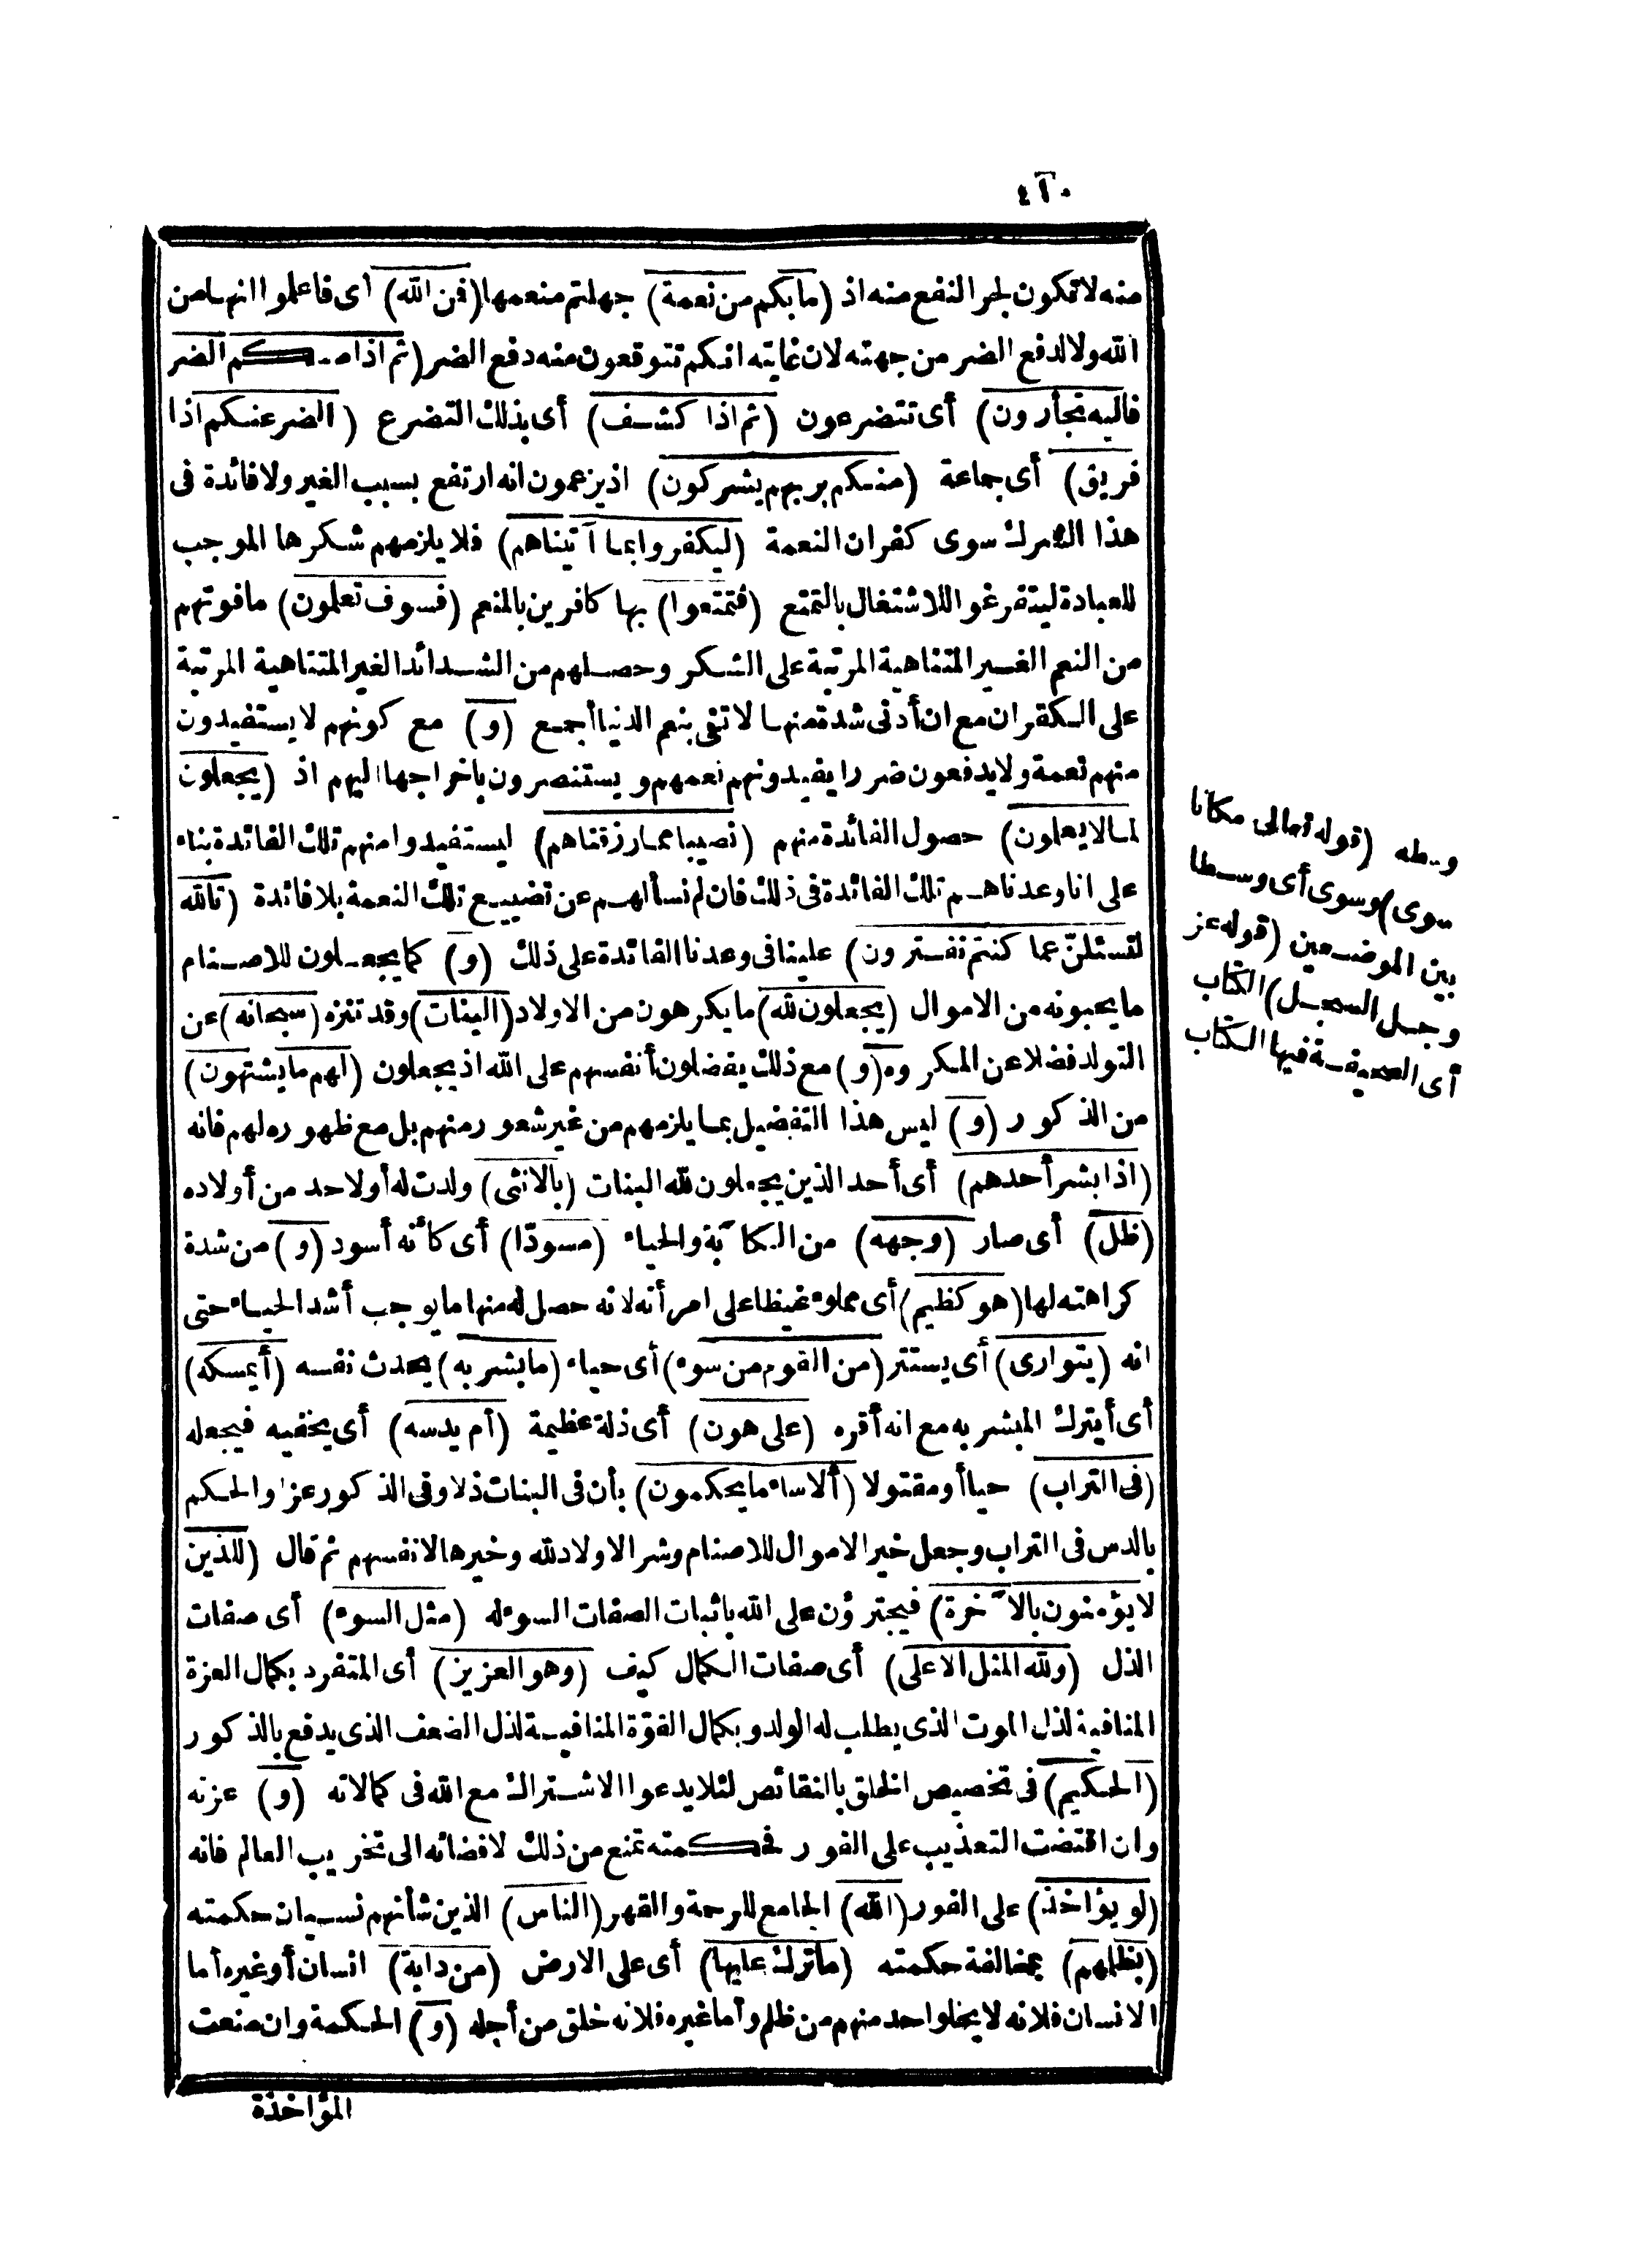 ٤١٠
منه لا تكون لجر النفع منه اذ (ما بكم من نعمة) جهلتم منعمها (فمن الله) أى فاعلموا انها من
الله ولا لدفع الضر من جهته لان غايته انكم تتوقعون منه دفع الضر (ثم اذا مسكم الضر
فاليه تجأرون) أى تتضرعون (ثم اذا كشف) أى بذلك التضرع (الضر عنكم اذا
فريق) أى جماعة (منكم بربهم يشركون) اذ يزعمون انه ارتفع بسبب الغير ولا فائدة فى
هذا الشرك سوى كفران النعمة (ليكفروا بما آتيناهم) فلا يلزمهم شكرها الموجب
للعبادة ليتفرغوا للاشتغال بالتمتع (فتمتعوا) بها كافرين بالمنعم (فسوف تعلمون) ما فوتهم
من النعم الغير المتناهية المرتبة على الشكر وحصلهم من الشدائد الغير المتناهية المرتبة
على الكفران مع ان أدنى شدة منها لا تفى بنعم الدنيا أجمع (و) مع كونهم لا يستفيدون
منهم نعمة ولا يدفعون ضررا يفيدونهم نعمهم و يستنصرون باخراجها اليهم اذ (يجعلون
لما لا يعلمون) حصول الفائدة منهم (نصيبا مما رزقناهم) ليستفيدوا منهم تلك الفائدة بناء
على انا وعدناهم تلك الفائدة فى ذلك فان لم نسألهم عن تضييع تلك النعمة بلا فائدة (تالله
لتسئلنّ عما كنتم تفترون) علينا فى وعدنا الفائدة على ذلك (و) كما يجعلون للاصنام
ما يحبونه من الاموال (يجعلون لله) ما يكرهون من الاولاد (البنات) وقد تنزه (سبحانه) عن
التولد فضلا عن المكروه (و) مع ذلك يفضلون أنفسهم على الله اذ يجعلون (لهم ما يشتهون)
من الذكور (و) ليس هذا التفضيل بما يلزمهم من غير شعور منهم بل مع ظهوره لهم فانه
(اذا بشر أحدهم) أى أحد الذين يجعلون لله البنات (بالانثى) ولدت له أو لاحد من أولاده
(ظل) أى صار (وجهه) من الكآبة والحياء (مسودّا) أى كأنه أسود (و) من شدة
كراهته لها (هو كظيم) أى مملوء غيظا على امرأته لانه حصل له منها ما يوجب أشد الحياء حتى
انه (يتوارى) أى يستتر (من القوم من سوء) أى حياء (ما بشر به) يحدث نفسه (أيمسكه)
أى أيترك المبشر به مع انه أقره (على هون) أى ذلة عظيمة (أم يدسه) أى يخفيه فيجعله
(فى التراب) حيا أو مقتولا (ألا ساء ما يحكمون) بأن فى البنات ذلا وفى الذكور عزا والحكم
بالدس فى التراب وجعل خير الاموال للاصنام وشر الاولاد لله وخيرها لانفسهم ثم قال (للذين
لا يؤمنون بالآخرة) فيجترؤن على الله باثبات الصفات السوء له (مثل السوء) أى صفات
الذل (ولله المثل الاعلى) أى صفات الكمال كيف (وهو العزيز) أى المتفرد بكمال العزة
المنافية لذل الموت الذى يطلب له الولد و بكمال القوّة المنافية لذل الضعف الذى يدفع بالذكور
(الحكيم) فى تخصيص الخلق بالنقائص لئلا يدعوا الاشتراك مع الله فى كمالاته (و) عزته
وان اقتضت التعذيب على الفور فحكمته تمنع من ذلك لافضائه الى تخريب العالم فانه
(لو يؤاخذ) على الفور (الله) الجامع للرحمة والقهر (الناس) الذين شأنهم نسيان حكمته
(بظلمهم) بمخالفة حكمته (ما ترك عليها) أى على الارض (من دابة) انسان أو غيره أما
الانسان فلانه لا يخلو احد منهم من ظلم وأما غيره فلانه خلق من أجله (و) الحكمة وان منعت
المؤاخذة
وسطه (قوله تعالى مكانا
سوى) وسوى أى وسطا
بين الموضعين (قوله عز
وجل السجل) الكتاب
أى الصحيفة فيها الكتاب